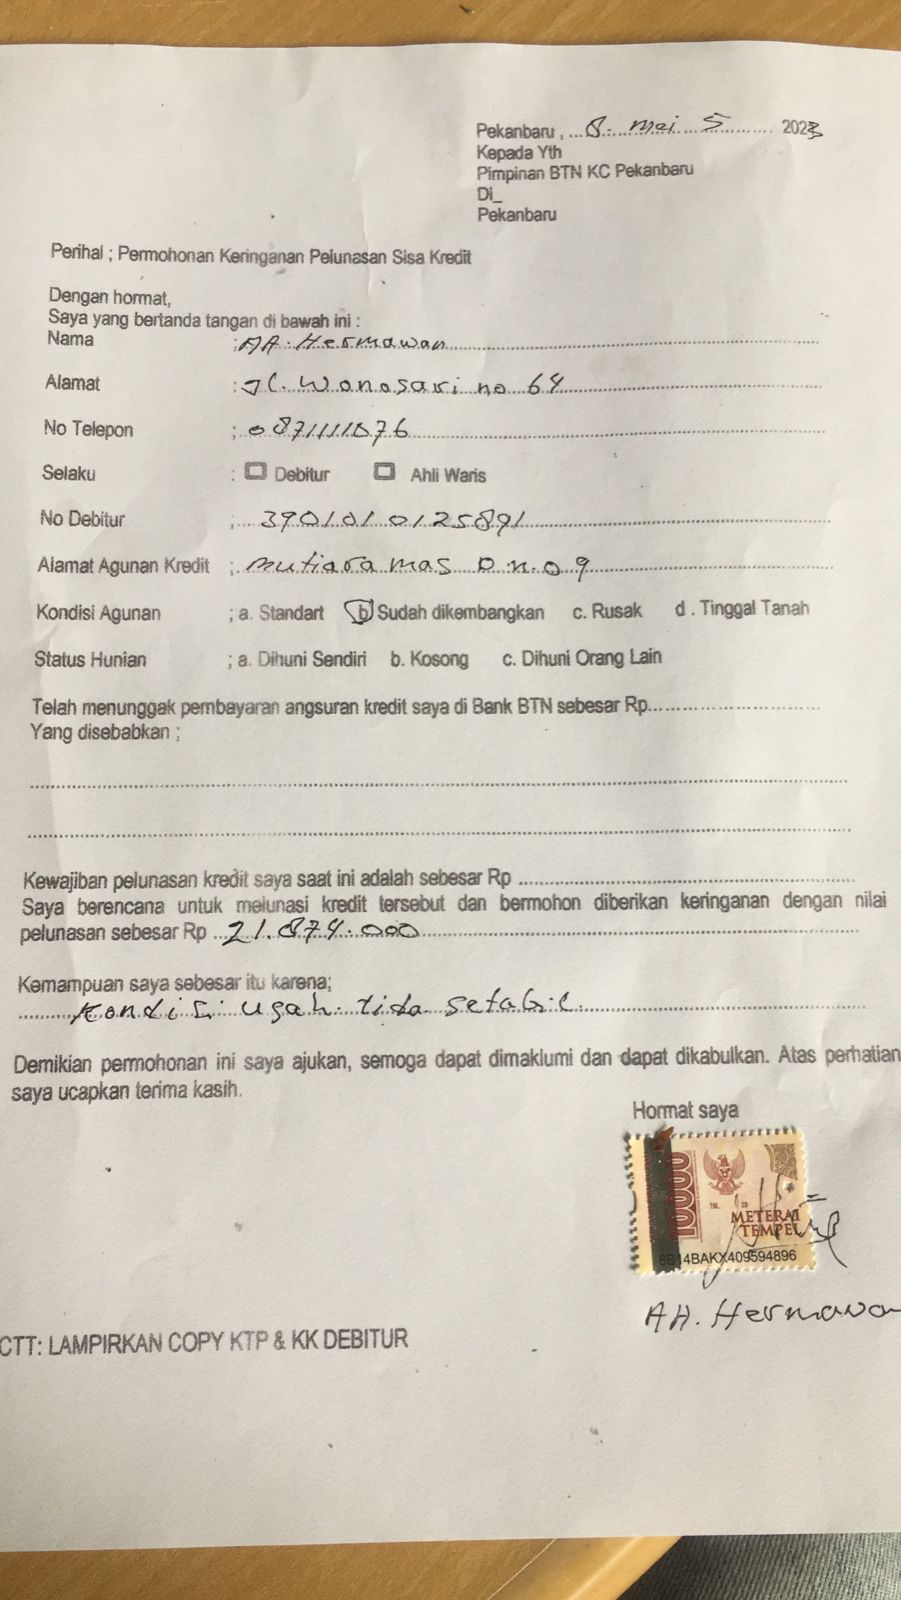 Pekanbaru, ...8. mei 5........... 2023
Kepada Yth
Pimpinan BTN KC Pekanbaru
Di_
Pekanbaru
Perihal ; Permohonan Keringanan Pelunasan Sisa Kredit
Dengan hormat,
Saya yang bertanda tangan di bawah ini :
Nama ; AA. Hermawan
Alamat : JL. Wonosari no 64
No Telepon ; 0871111076
Selaku : Debitur Ahli Waris
No Debitur ; 3901010125891
Alamat Agunan Kredit ; mutiara mas D n.o 9
Kondisi Agunan ; a. Standart b Sudah dikembangkan c. Rusak d . Tinggal Tanah
Status Hunian ; a. Dihuni Sendiri b. Kosong c. Dihuni Orang Lain
Telah menunggak pembayaran angsuran kredit saya di Bank BTN sebesar Rp..............................
Yang disebabkan ;
Kewajiban pelunasan kredit saya saat ini adalah sebesar Rp ..............................
Saya berencana untuk melunasi kredit tersebut dan bermohon diberikan keringanan dengan nilai
pelunasan sebesar Rp ..21.874.000
Kemampuan saya sebesar itu karena;
Kondisi usah tida setabil
Demikian permohonan ini saya ajukan, semoga dapat dimaklumi dan dapat dikabulkan. Atas perhatian
saya ucapkan terima kasih.
Hormat saya
10000
TGL. 20
METERAI
TEMPEL
4BAKX409594896
AA. Hermawan
CTT: LAMPIRKAN COPY KTP & KK DEBITUR